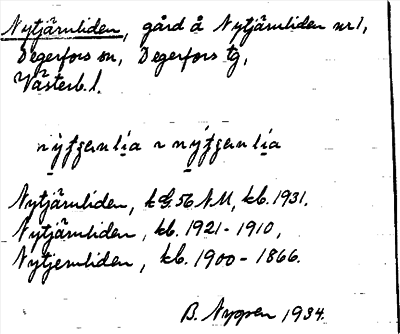 Nytjärnliden, gård å Nytjärnliden nr 1,
Degerfors sn, Degerfors tg,
Västerb. l.
Nytjärnliden, k bl. 56 N.V., kb. 1931.
Nytjärnliden, kb. 1921-1910,
Nytjernliden, kb. 1900-1866.
B. Nygren 1934.